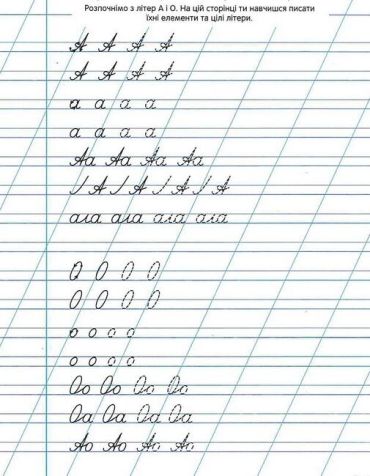 Розпочнімо з літер А і О. На цій сторінці ти навчишся писати
їхні елементи та цілі літери.
А А А А
А А А А
а а а а
а а а а
Аа Аа Аа Аа
А А А А
ала ала ала ала
О О О О
О О О О
о о о о
о о о о
Оо Оо Оо Оо
Оа Оа Оа Оа
Ао Ао Ао Ао